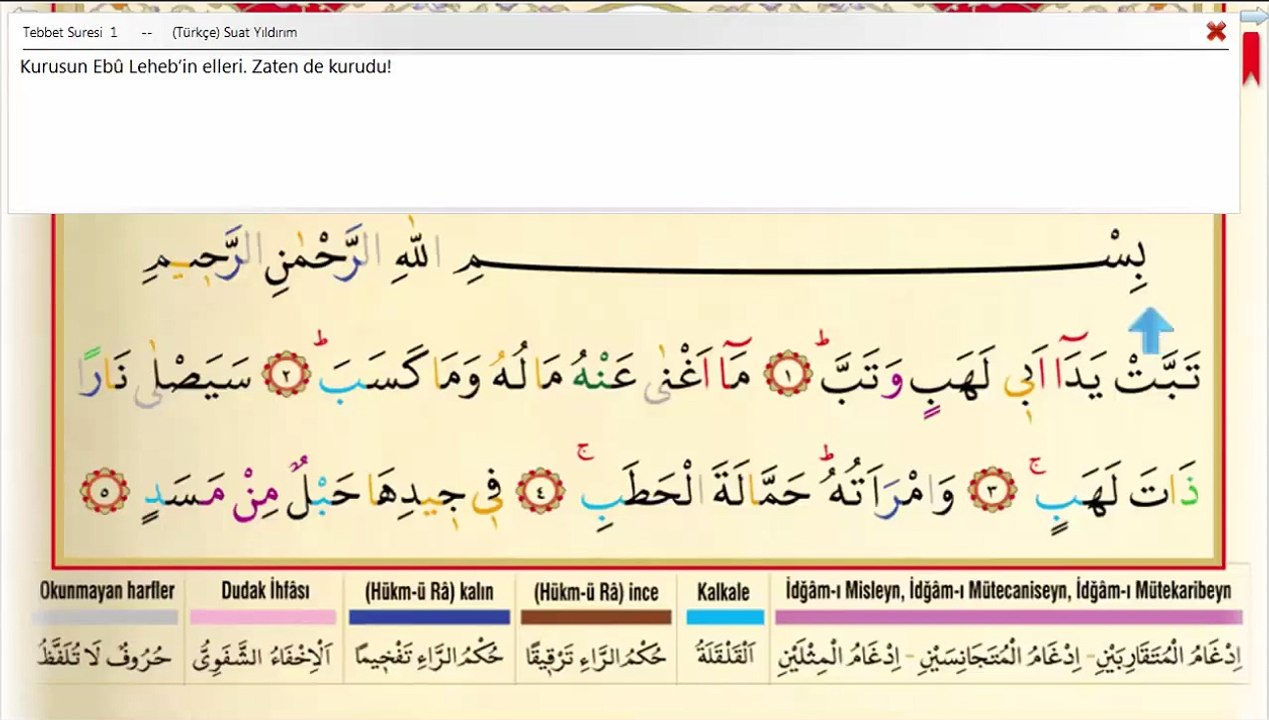 Tebbet Suresi 1 -- (Türkçe) Suat Yıldırım
Kurusun Ebû Leheb'in elleri. Zaten de kurudu!
بِسْمِ اللّٰهِ الرَّحْمٰنِ الرَّحٖيمِ
تَبَّتْ يَدَٓا اَبٖي لَهَبٍ وَتَبَّؕ ﴿١﴾ مَٓا اَغْنٰى عَنْهُ مَالُهُ وَمَا كَسَبَؕ ﴿٢﴾ سَيَصْلٰى نَارًا
ذَاتَ لَهَبٍۚ ﴿٣﴾ وَامْرَاَتُهُؕ حَمَّالَةَ الْحَطَبِۚ ﴿٤﴾ فٖي جٖيدِهَا حَبْلٌ مِنْ مَسَدٍ ﴿٥﴾
Okunmayan harfler Dudak İhfâsı (Hükm-ü Râ) kalın (Hükm-ü Râ) ince Kalkale İdğâm-ı Misleyn, İdğâm-ı Mütecaniseyn, İdğâm-ı Mütekaribeyn
إِدْغَامُ الْمُتَقَارِبَيْنِ - إِدْغَامُ الْمُتَجَانِسَيْنِ - إِدْغَامُ الْمِثْلَيْنِ اَلْقَلْقَلَةُ حُكْمُ الرَّاءِ تَرْقٖيقًا حُكْمُ الرَّاءِ تَفْخٖيمًا اَلْإِخْفَاءُ الشَّفَوِيُّ حُرُوفٌ لَا تُلَفَّظُ